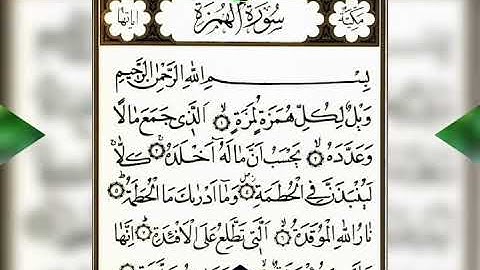 مكية سورة الهمزة آياتها
بِسْمِ اللهِ الرَّحْمٰنِ الرَّحِيمِ
وَيْلٌ لِكُلِّ هُمَزَةٍ لُمَزَةٍ ۝١ اَلَّذِى جَمَعَ مَالًا
وَعَدَّدَهُ ۝٢ يَحْسَبُ اَنَّ مَالَهُ اَخْلَدَهُ ۝٣ كَلَّا
لَيُنْبَذَنَّ فِى الْحُطَمَةِ ۝٤ وَمَا اَدْرٰيكَ مَا الْحُطَمَةُ ۝٥
نَارُ اللهِ الْمُوقَدَةُ ۝٦ اَلَّتِى تَطَّلِعُ عَلَى الْاَفْئِدَةِ ۝٧ اِنَّهَا